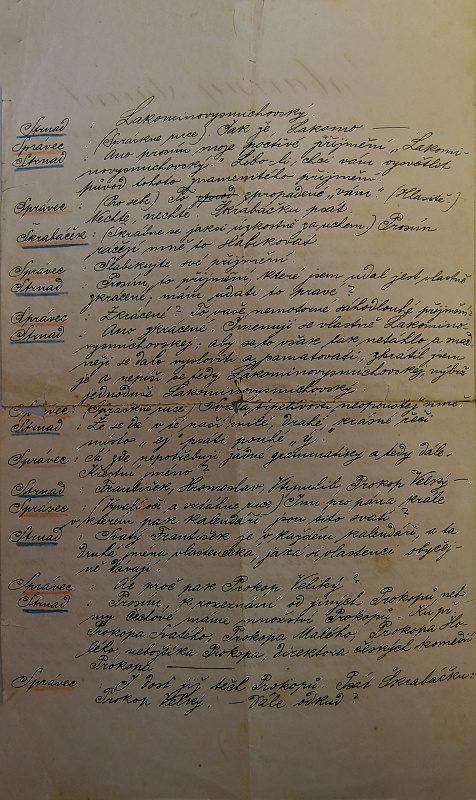 Strnad : Lakominovysmichovský.
Správec : (Spráskne ruce.) Jak že, Lakomo —
Strnad : Ano prosím moje poctivé příjmění „Lakomi-
novysmichovský." Libo-li, chci vám vysvětlit
původ tohoto znamenitého příjmění.
Správec : (Pro sebe.) To zpropadené „vám". (Hlasitě.)
Nechte, nechte! Škrabáčku psát.
Škrabáček : (Škrábe se jaksi úzkostně za uchem.) Prosím
račtěž mně to slabikovat.
Správec : Slabikujte své příjmění.
Strnad : Prosím, to příjmění, které jsem udal jest vlastně
zkrácené; mám udati to pravé?
Správec : Zkrácené? To vaše nemotorné sáhodlouhé příjmění?
Strnad : Ano zkrácené. Jmenuji se vlastně Lakomino-
vysmichovskej; aby se to však tak netáhlo a snad-
něji se dalo vysloviti a pamatovati, zkrátil jsem
je a nepíši se tedy Lakominovysmichovskej, nýbrž
jednoduše Lakominovysmichovský.
Správec : (Spráskne ruce.) trpělivosti, neopouštěj mne!
Strnad : Že se dá v té naší milé, drahé, krásné řeči
místo „ej" psáti pouhé „ý".
Správec : Já zde nepotřebuji žádné grammatiky a tedy dále.
Křestní jméno?
Strnad : František, Hromoslav, Vtipmilil Prokop Velký —.
Správec : (Vyvalí oči a vztáhne ruce.) I mu pro pána krále
v kterém pak kalendáři jsou tito svatí?
Strnad : Svatý František je v každém kalendáři, a ta
druhá jména vlastenecká, jaká si vlastenci obyčej-
ně dávají.
Správec : Ale proč pak Prokop Veliký?
Strnad : Prosím, k rozeznání od jiných Prokopů, neb
my Čechové máme množství Prokopů. Ku př.
Prokopa Svatého, Prokopa Malého, Prokopa Ho-
lého, nebožtíka Prokopa, direktora českých komedií
Prokopa
Správec : I dost již těch Prokopů. Psát Škrabáčku:
Prokop Velký. — Dále odkud?